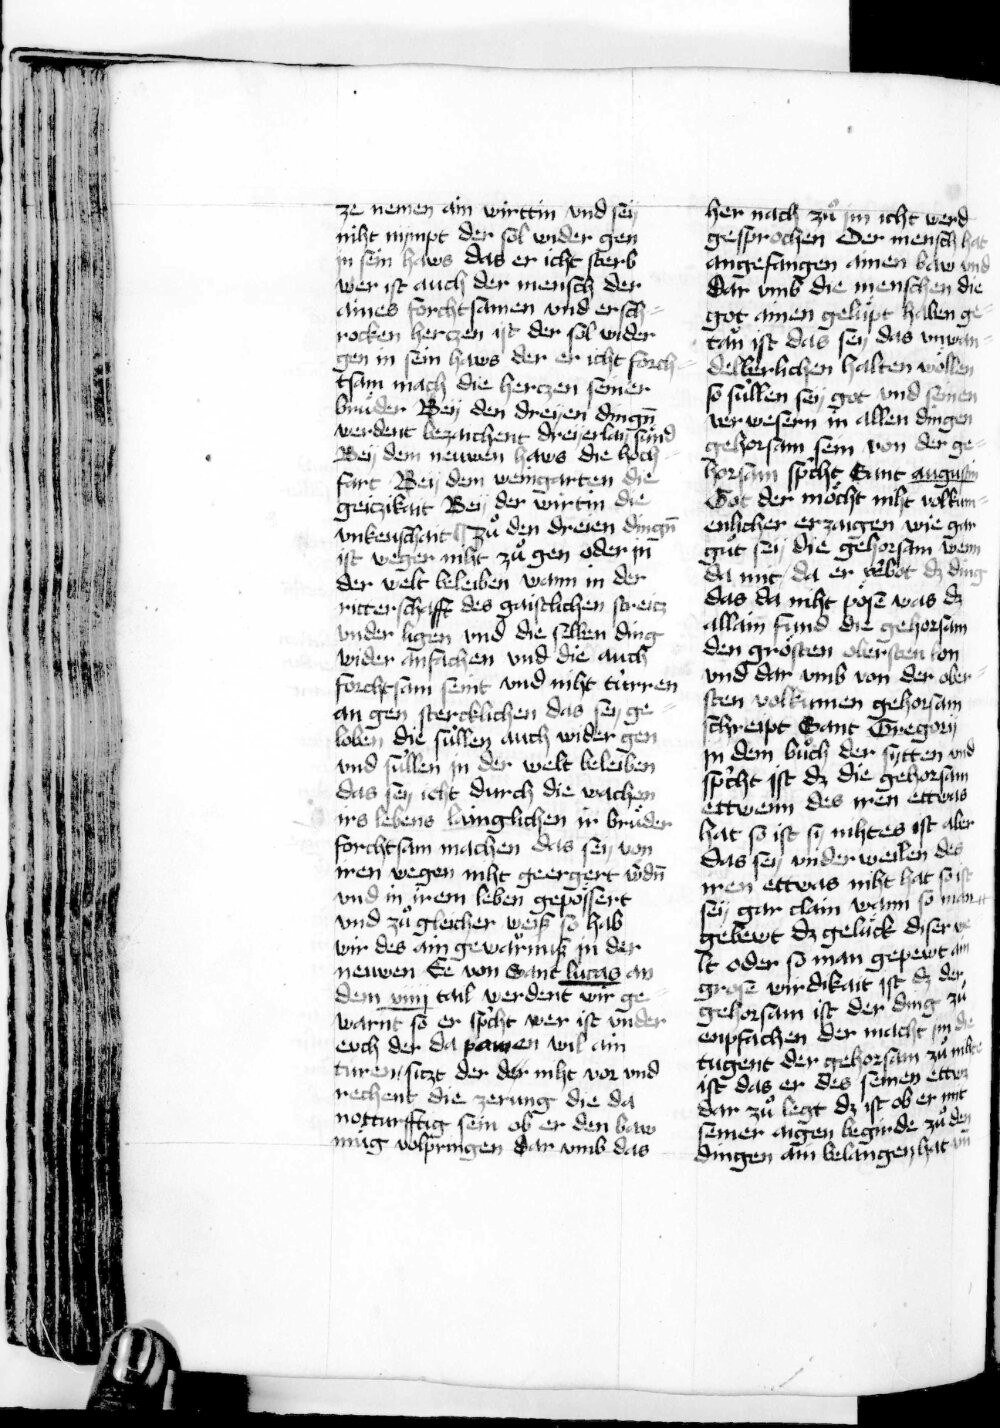 ze nemen ain wirttin vnd seÿ
niht nÿmpt der sol wider gen
jn sein haws das er icht sterb
wer ist auch der mensch der
aines forchtsamen vnd ersch=
rocken herczen ist der sol wider
gen in sein haws der er icht forch=
tsam mach die herczen seiner
brůder Beÿ den dreÿen dingn̄
werdent bezaichent dreÿerlaÿ sünd
Beÿ dem neuwen haws die hoch=
fart Beÿ dem weingarten die
geiczikait Beÿ der wirtin die
vnkeuschait Zů den dreien dingn̄
ist weger niht zů gen oder in
der welt beleiben wann in der
ritterschafft des gaistlichen streitz
vnder ligen vnd die selben ding
wider anfachen vnd die auch
forchtsam seint vnd niht türren
an gen stercklichen das seÿ ge=
loben die süllen auch wider gen
vnd süllen jn der welt beleiben
das seÿ icht durch die wachen
irs lebens lainglichen ir brůder
forchtsam machen das seÿ von
iren wegen niht geergert wdn̄
vnd in irem leben gepössert
vnd zů gleicher weiß so hab
wir des ain gewarnuß jn der
neuwen Ee von Sant lucas an
dem viiij tail werdent wir ge=
warnt so er spcht wer ist vnder
euch der da pawen wil ain
turen siczt der der niht vor vnd
rechent die zerung die da
notturfftig sein ob er den baw
müg volpringen Dar vmb das
her nach zů jm icht werd
gesprochen Der mensch hat
angefangen ainen baw vnd
Dar vmb die menschen die
got ainen gelüpt haben ge=
tan ist das seÿ das vnwan=
delberlichen halten wöllen
so süllen seÿ got vnd seinen
verwesern in allen dingen
gehorsam sein von der ge=
horsam spcht Sant augustin
Got der möcht niht volkum=
enlicher erzaigen wie gar
gůt seÿ die gehorsam wenn
da mit da er v̄bot dz ding
das da niht pöse was dz
allain fund die gehorsam
den grösten obersten lon
vnd dar vmb von der ober=
sten volkumen gehorsam
schreipt Sant Gregorÿ
jn dem bůch der sÿtten vnd
spcht ist dz die gehorsam
ettwenn des iren ettwas
hat so ist sÿ nihtes ist aber
das seÿ vnderweilen des
iren ettwas niht hat so ist
seÿ gar clain wann so man
gebewt dz gelück diser we
lt oder so man gepewt ain
grose wirdikait ist dz der
gehorsam ist der ding zů
enpfachen der macht jm die
tugent der gehorsam zů nihte
ist das er des seinen ettwz
dar zů legt dz ist ob er mit
seiner aigen begirde zů den
dingen ain belangen hat vn̄